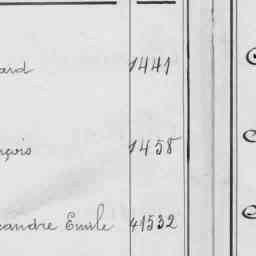 ard 1441
nçois 1458
exandre Emile 41532